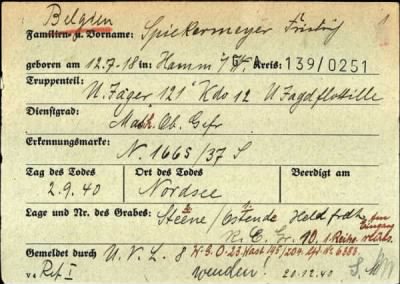 Belgien
Familien- u. Vorname: Spiekermeyer
geboren am 12.7.18 in Hamm i/W. Kreis: 139/0251
G.A.
Truppenteil:
U. Jäger 121 Kdo 12 U Jagdflottille
Dienstgrad:
Mask. Ob. Gefr
Erkennungsmarke:
N. 1665/37 S
Tag des Todes Ort des Todes Beerdigt am
2.9.40 Nordsee
Lage und Nr. des Grabes: Steene/Ostende Heldfrdh. Am Eingang
Gr. 10. 1. Reihe
Gemeldet durch U.V.L. 8
v. Ref I wenden! 20.12.40